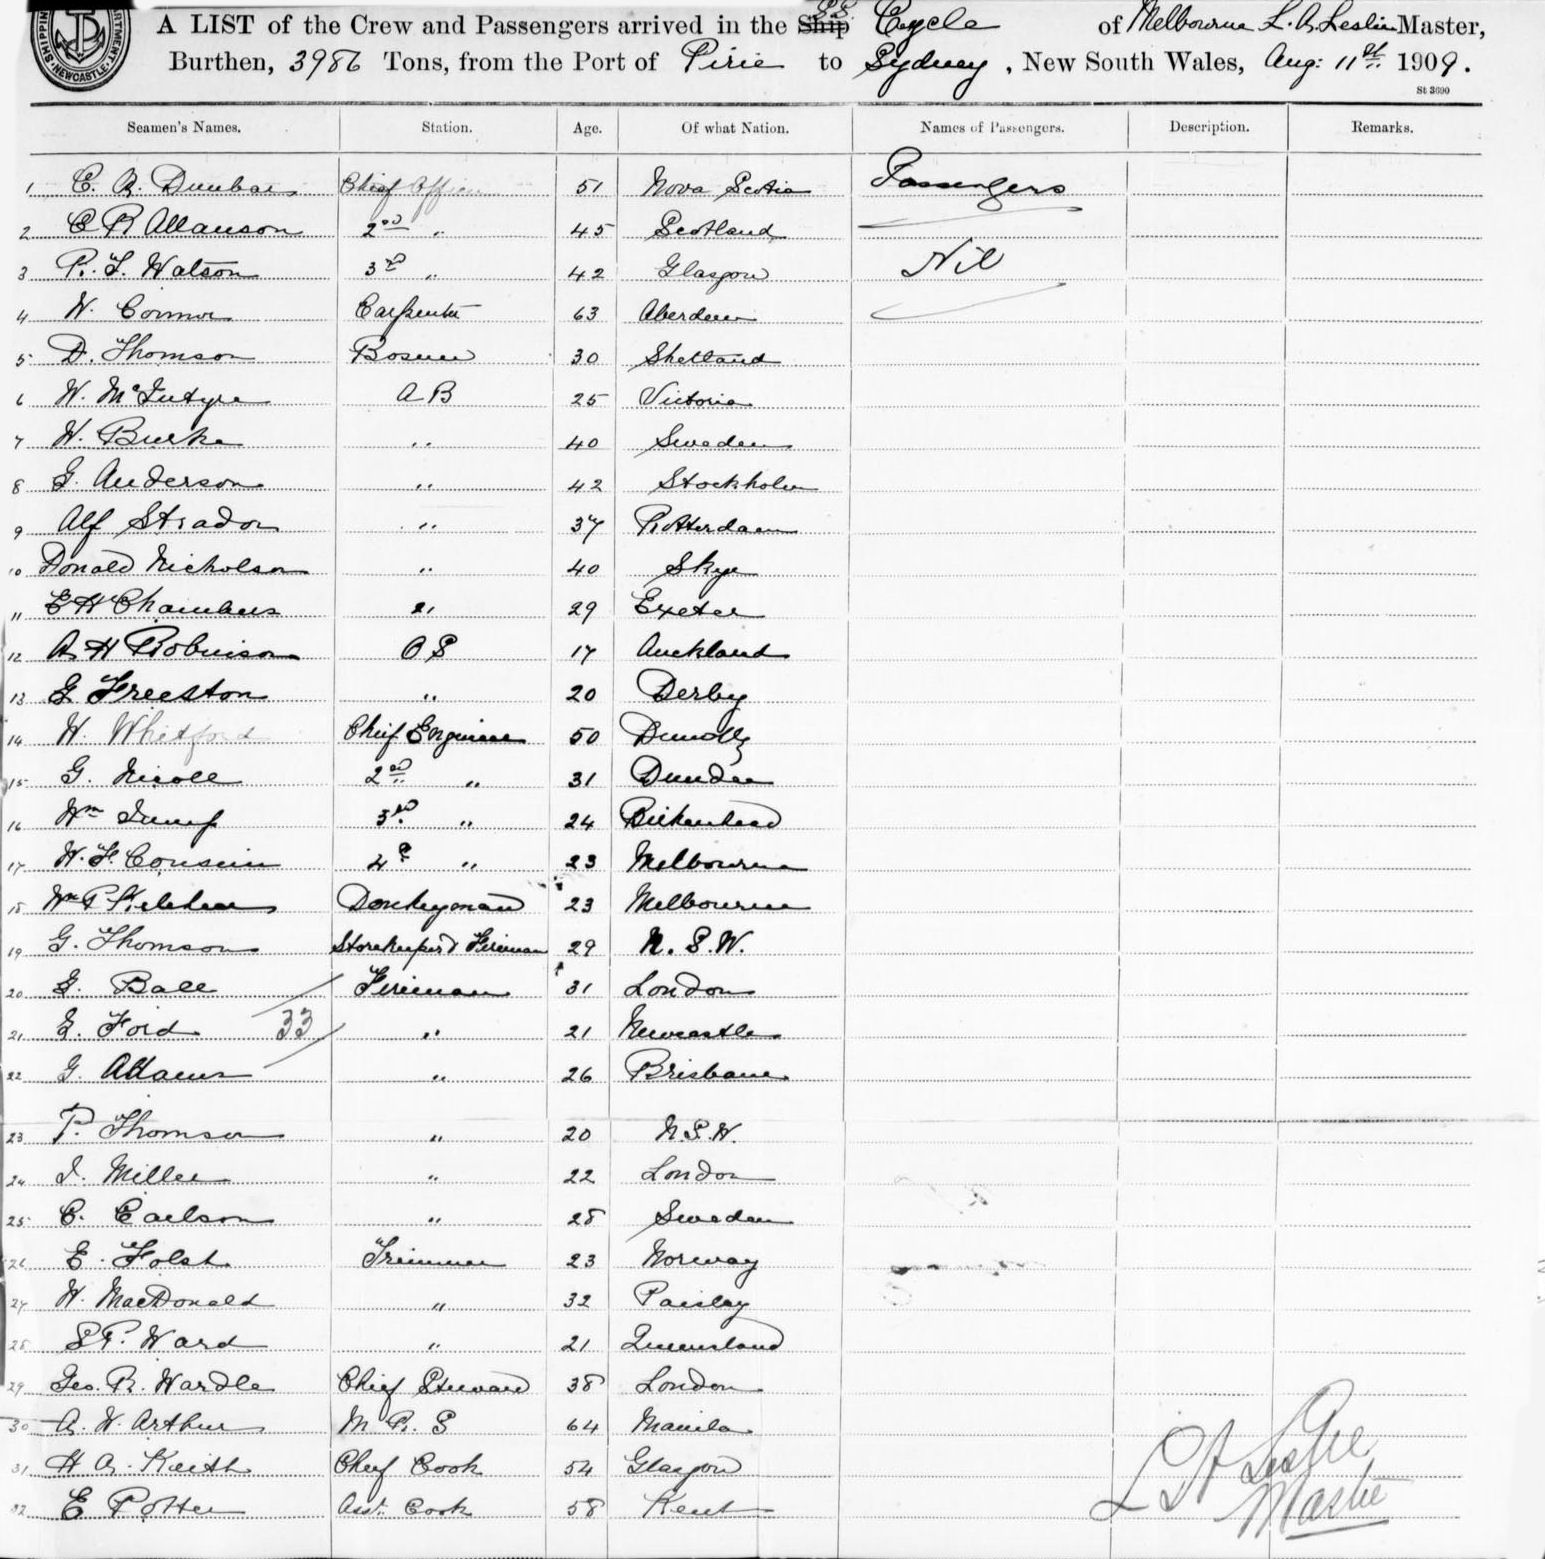 SHIPPING DEPARTMENT NEWCASTLE
A LIST of the Crew and Passengers arrived in the Ship SS Cycle of Melbourne L. A. Leslie Master,
Burthen, 3986 Tons, from the Port of Pirie to Sydney, New South Wales, Aug: 11th 1909.
St 3690
Seamen's Names. Station. Age. Of what Nation. Names of Passengers. Description. Remarks.
1 C. A. Dunbar Chief Officer 51 Nova Scotia Passengers
2 C R Allanson 2nd " 45 Scotland
3 R. L. Watson 3rd " 42 Glasgow Nil
4 W. Connor Carpenter 63 Aberdeen
5 D. Thomson Bosun 30 Shetland
6 W. McIntyre A B 25 Victoria
7 W. Burke " 40 Sweden
8 G. Anderson " 42 Stockholm
9 Alf Stradon " 37 Rotterdam
10 Donald Nicholson " 40 Skye
11 E H Chambers " 29 Exeter
12 A H Robinson O S 17 Auckland
13 G Freeston " 20 Derby
14 W. Whitford Chief Engineer 50 Dunolly
15 G. Nicoll 2nd " 31 Dundee
16 Wm 3rd " 24 Birkenhead
17 W. F. Cousin 4th " 23 Melbourne
18 Wm P Kelehear Donkeyman 23 Melbourne
19 G. Thomson Storekeeper & Fireman 29 N. S. W.
20 G. Ball Fireman 31 London
21 G. Ford 33 " 21 Newcastle
22 G. Adams " 26 Brisbane
23 P. Thomson " 20 N. S. W.
24 J. Miller " 22 London
25 C. Carlson " 28 Sweden
26 E. Folsh Trimmer 23 Norway
27 W. MacDonald " 32 Paisley
28 S P. Ward " 21 Queensland
29 Geo. R. Wardle Chief Steward 38 London
30 A. W. Arthur M R. S 64 Manila
31 H A. Keith Chief Cook 54 Glasgow
32 E Potter Asst. Cook 58 Kent
L A Leslie
Master